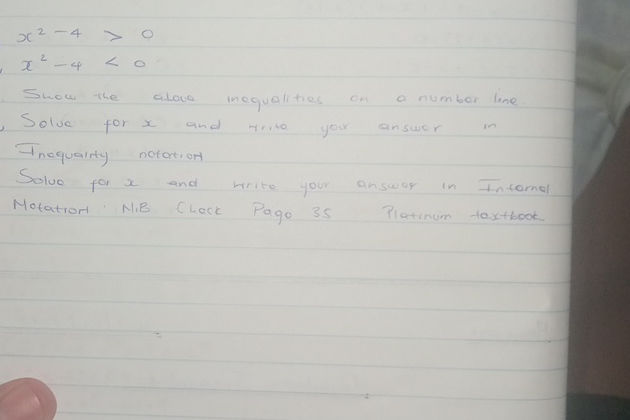 x² - 4 > 0
x² - 4 < 0
Show the above inequalities on a number line.
Solve for x and write your answer in
Inequality notation
Solve for x and write your answer in Interval
Notation. N.B. Check Page 35 Platinum textbook